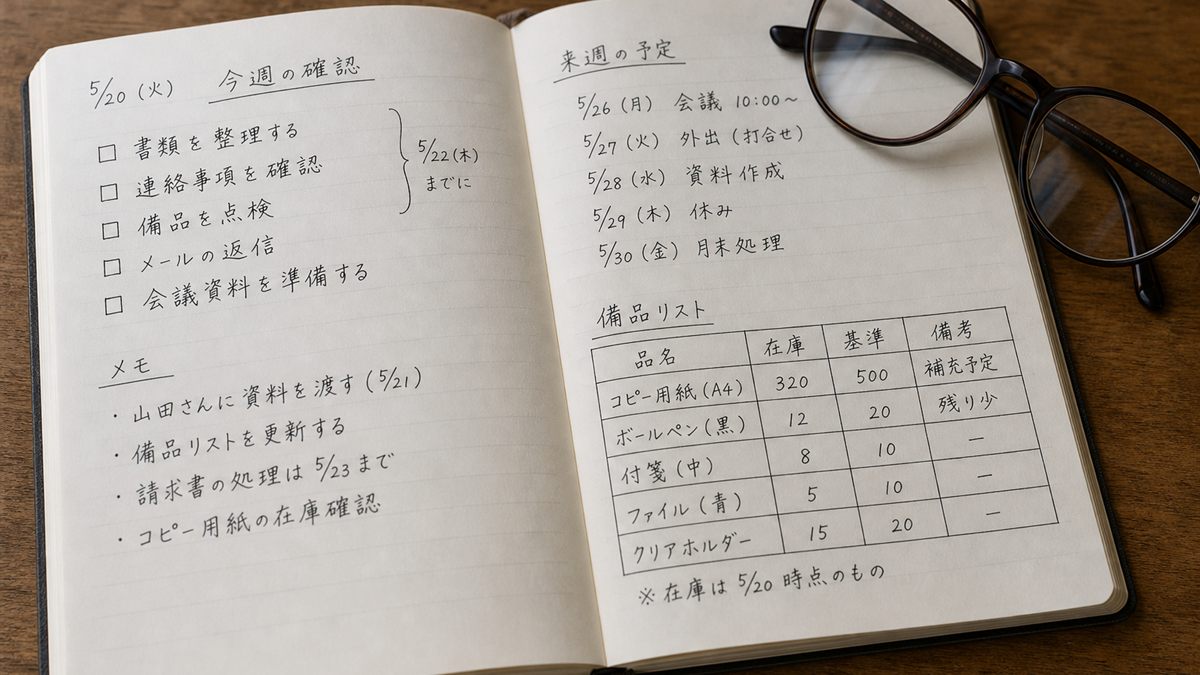 5/20(火) 今週の確認
□ 書類を整理する
□ 連絡事項を確認
□ 備品を点検
□ メールの返信
□ 会議資料を準備する
5/22(木)
までに
メモ
・山田さんに資料を渡す(5/21)
・備品リストを更新する
・請求書の処理は5/23まで
・コピー用紙の在庫確認
来週の予定
5/26(月) 会議 10:00〜
5/27(火) 外出(打合せ)
5/28(水) 資料作成
5/29(木) 休み
5/30(金) 月末処理
備品リスト
品名 在庫 基準 備考
コピー用紙(A4) 320 500 補充予定
ボールペン(黒) 12 20 残り少
付箋(中) 8 10 ―
ファイル(青) 5 10 ―
クリアホルダー 15 20 ―
※在庫は5/20時点のもの